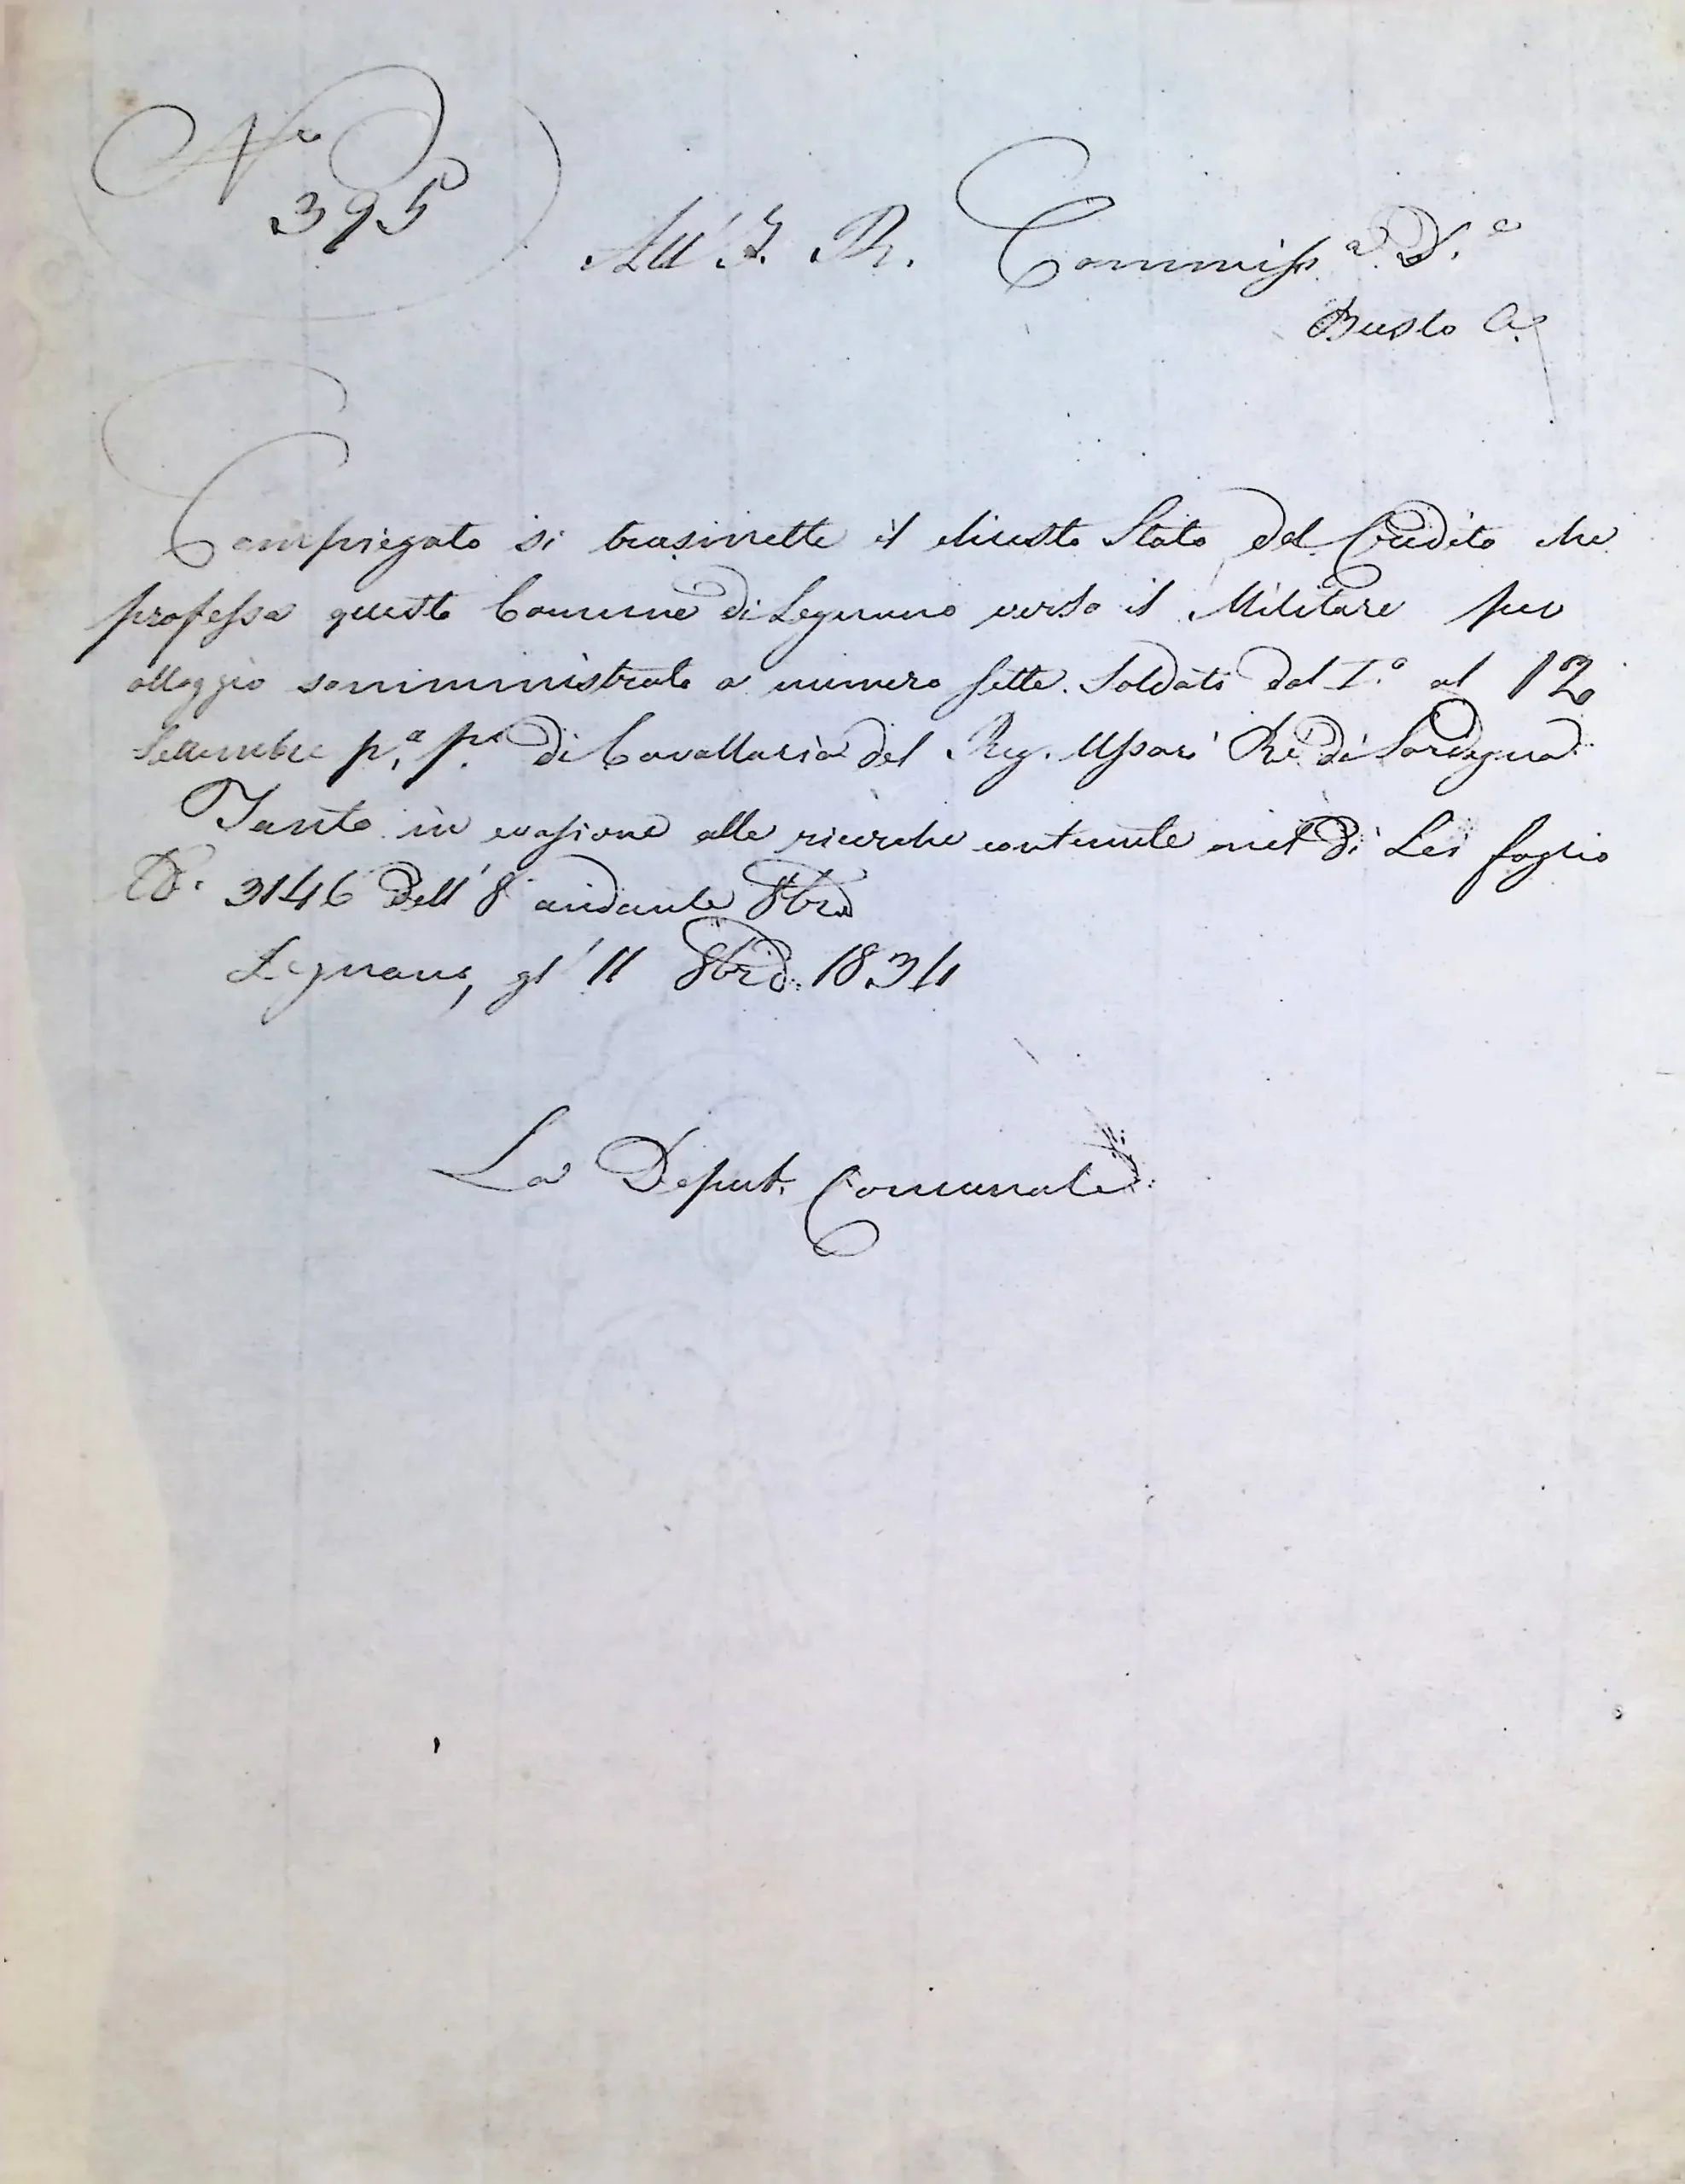 N.ro
395
All' I. R. Commiss.a D.e
Busto A.
Compiegato si trasmette il chiesto Stato del Credito che
professa questo Comune di Legnano verso il Militare per
alloggio somministrato a numero sette Soldati dal I.o al 12
Settembre p.o p.o di Cavallaria del Reg. Ussari Rè di Sardegna
Tanto in evasione alle ricerche contenute nel di Lei foglio
N. 3146 dell' 8 andante 8bre
Legnano, gl' 11 8bre 1834
La Deput. Comunale